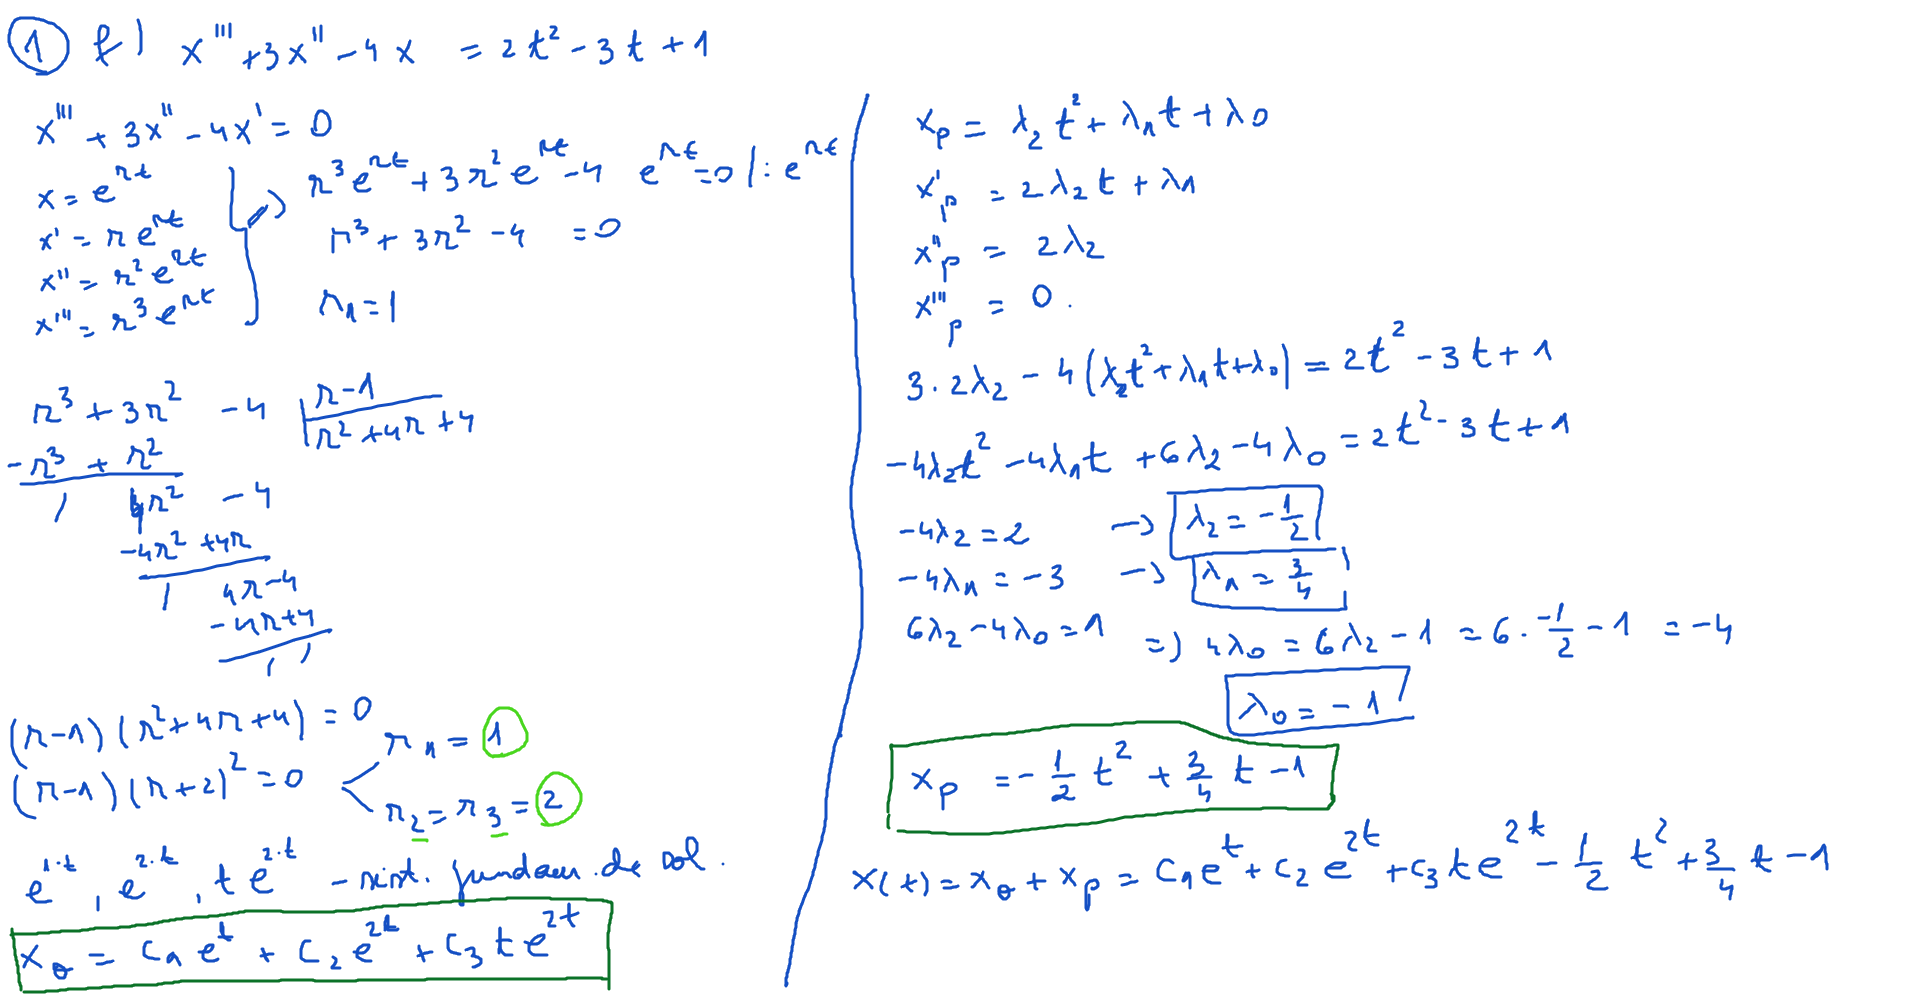 ① f) x''' + 3x'' - 4x = 2t² - 3t + 1
x''' + 3x'' - 4x' = 0
x = e^{rt}
x' = r e^{rt}
x'' = r² e^{rt}
x''' = r³ e^{rt}
=> r³ e^{rt} + 3r² e^{rt} - 4 e^{rt} = 0 | : e^{rt}
r³ + 3r² - 4 = 0
r₁ = 1
r³ + 3r² - 4 | r - 1
r² + 4r + 4
- r³ + r²
/ 4r² - 4
- 4r² + 4r
/ 4r - 4
- 4r + 4
/ /
(r-1)(r² + 4r + 4) = 0
(r-1)(r+2)² = 0
r₁ = 1
r₂ = r₃ = 2
e^{1·t}, e^{2·t}, t e^{2·t} - sist. fundam. de sol.
x₀ = c₁ e^t + c₂ e^{2t} + c₃ t e^{2t}
x_p = λ₂ t² + λ₁ t + λ₀
x'_p = 2λ₂ t + λ₁
x''_p = 2λ₂
x'''_p = 0.
3 · 2λ₂ - 4(λ₂t² + λ₁t + λ₀) = 2t² - 3t + 1
-4λ₂t² - 4λ₁t + 6λ₂ - 4λ₀ = 2t² - 3t + 1
-4λ₂ = 2 → λ₂ = -1/2
-4λ₁ = -3 → λ₁ = 3/4
6λ₂ - 4λ₀ = 1 => 4λ₀ = 6λ₂ - 1 = 6 · -1/2 - 1 = -4
λ₀ = -1
x_p = -1/2 t² + 3/4 t - 1
x(t) = x₀ + x_p = c₁e^t + c₂ e^{2t} + c₃ t e^{2t} - 1/2 t² + 3/4 t - 1